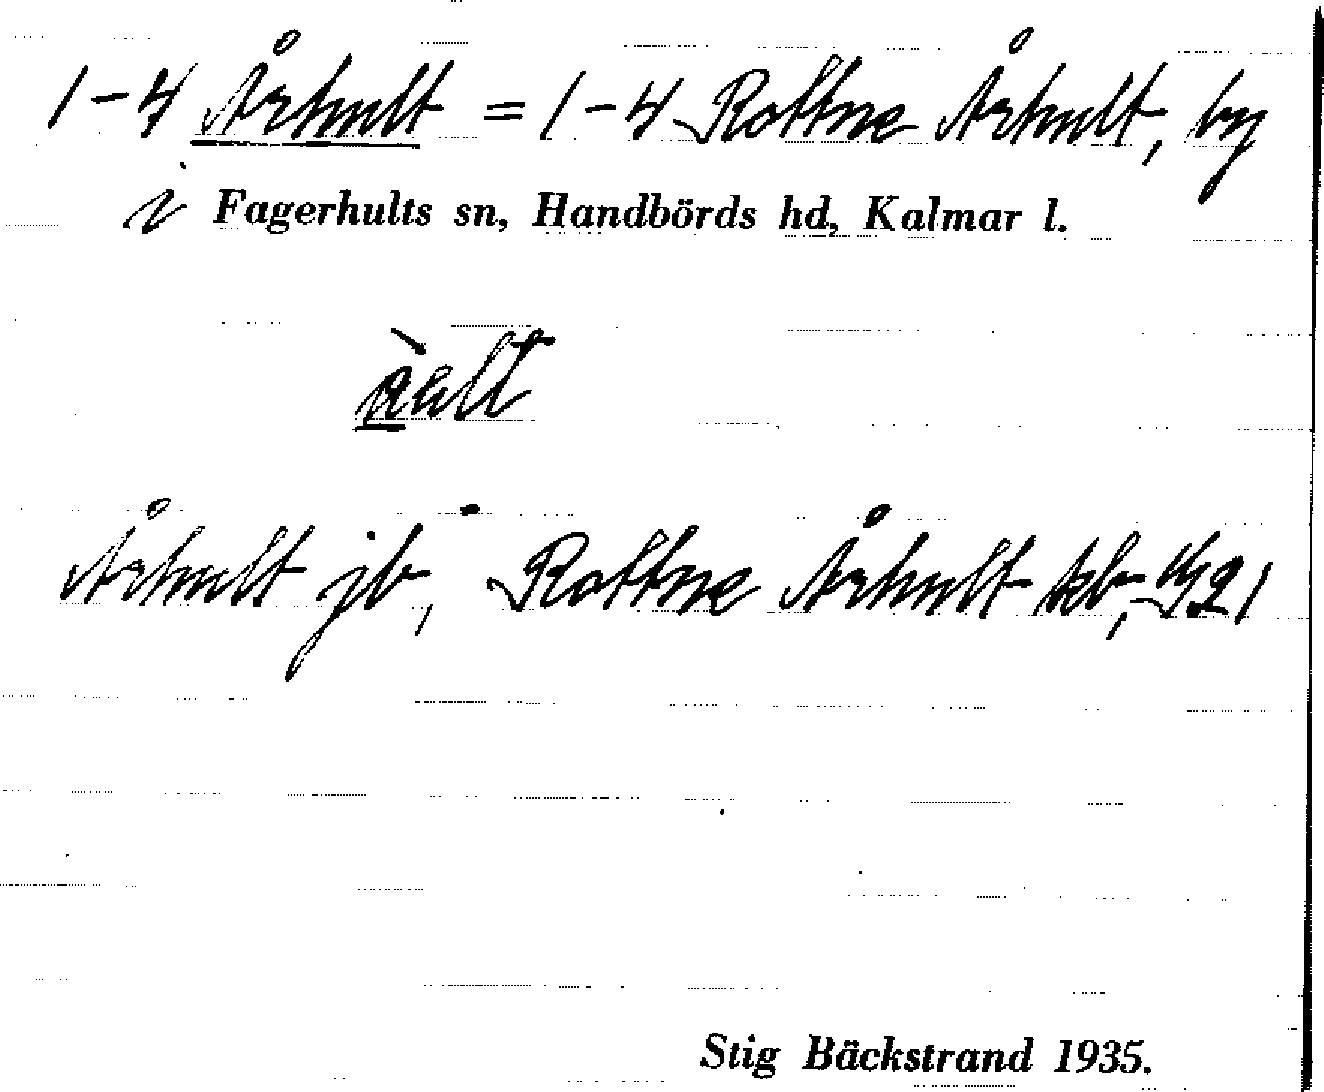 1-4 Århult = 1-4 Rottne Århult, by
i Fagerhults sn, Handbörds hd, Kalmar l.
Århult jb, Rottne Århult kb,
Stig Bäckstrand 1935.